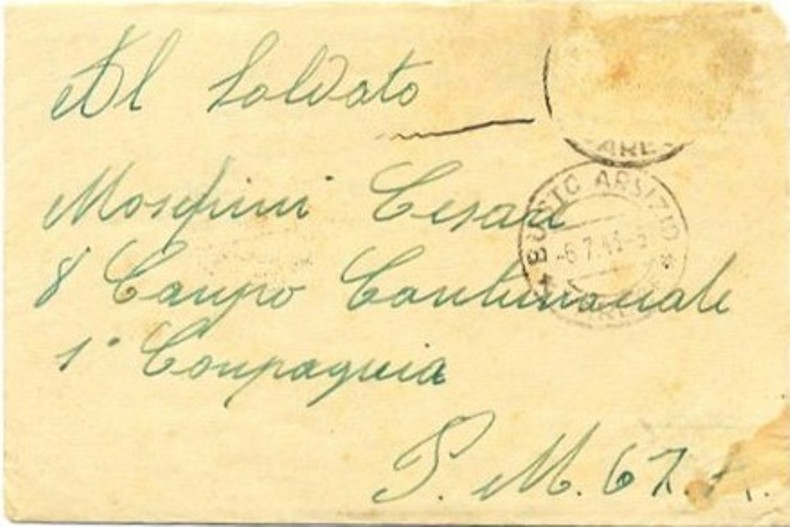 Al Soldato
Cesare
8° Campo Contumaciale
1° Compagnia
P. M. 67.
BUSTO ARSIZIO